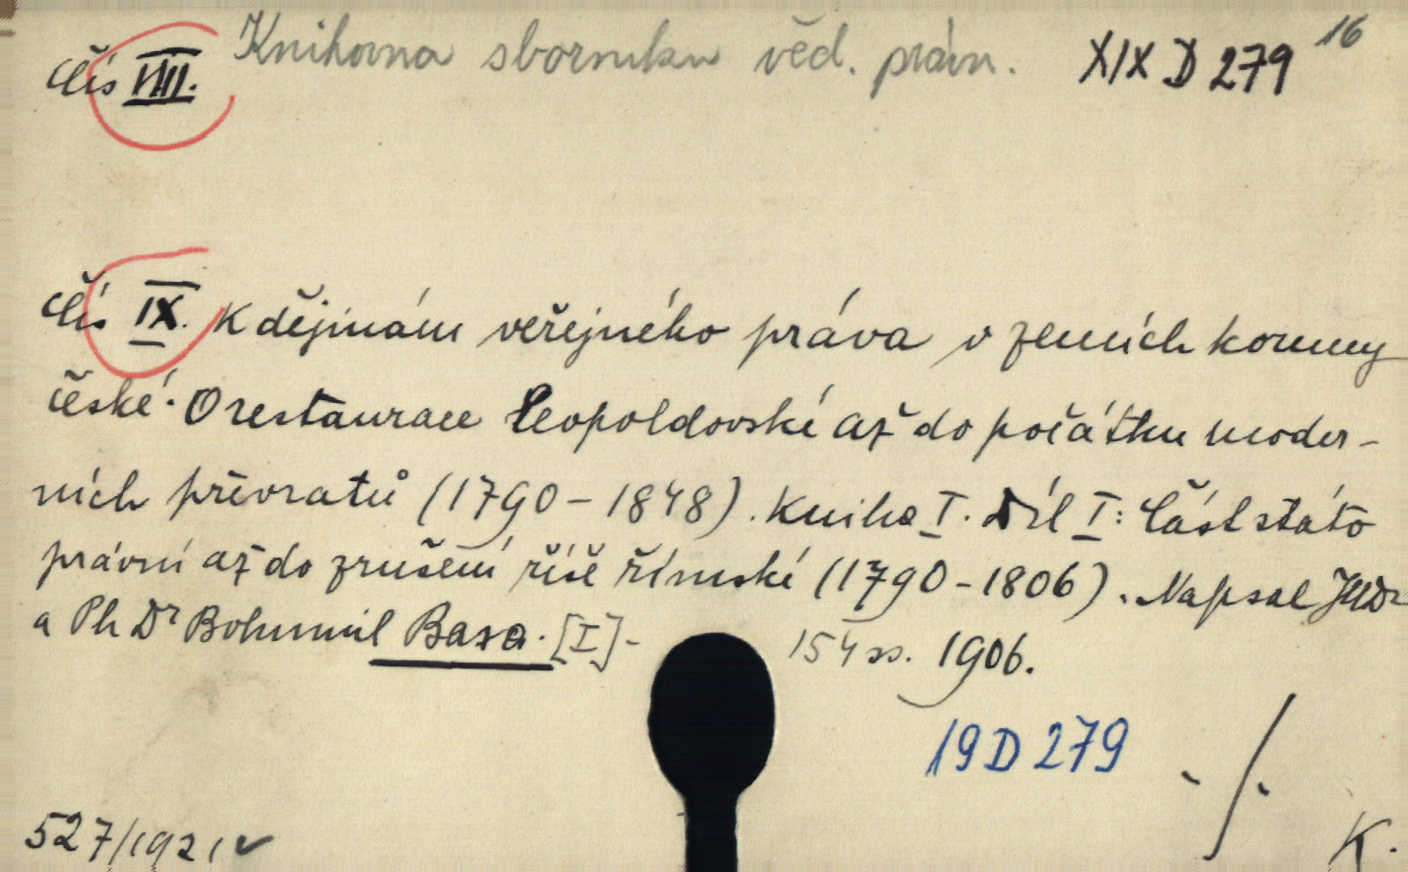 Knihovna sborníku věd. práv. XIX D 279 16
Čís VIII.
Čís IX. K dějinám veřejného práva v zemích koruny
české. O restaurace Leopoldovské až do počátku moder-
ních převratů (1790-1848). Kniha I. Díl I: Část státo
právní až do zrušení říše římské (1790-1806). Napsal JUDr
a Ph Dr Bohumil Baxa. [I]- 154 ss. 1906.
19 D 279 -/-
527/1921 K.